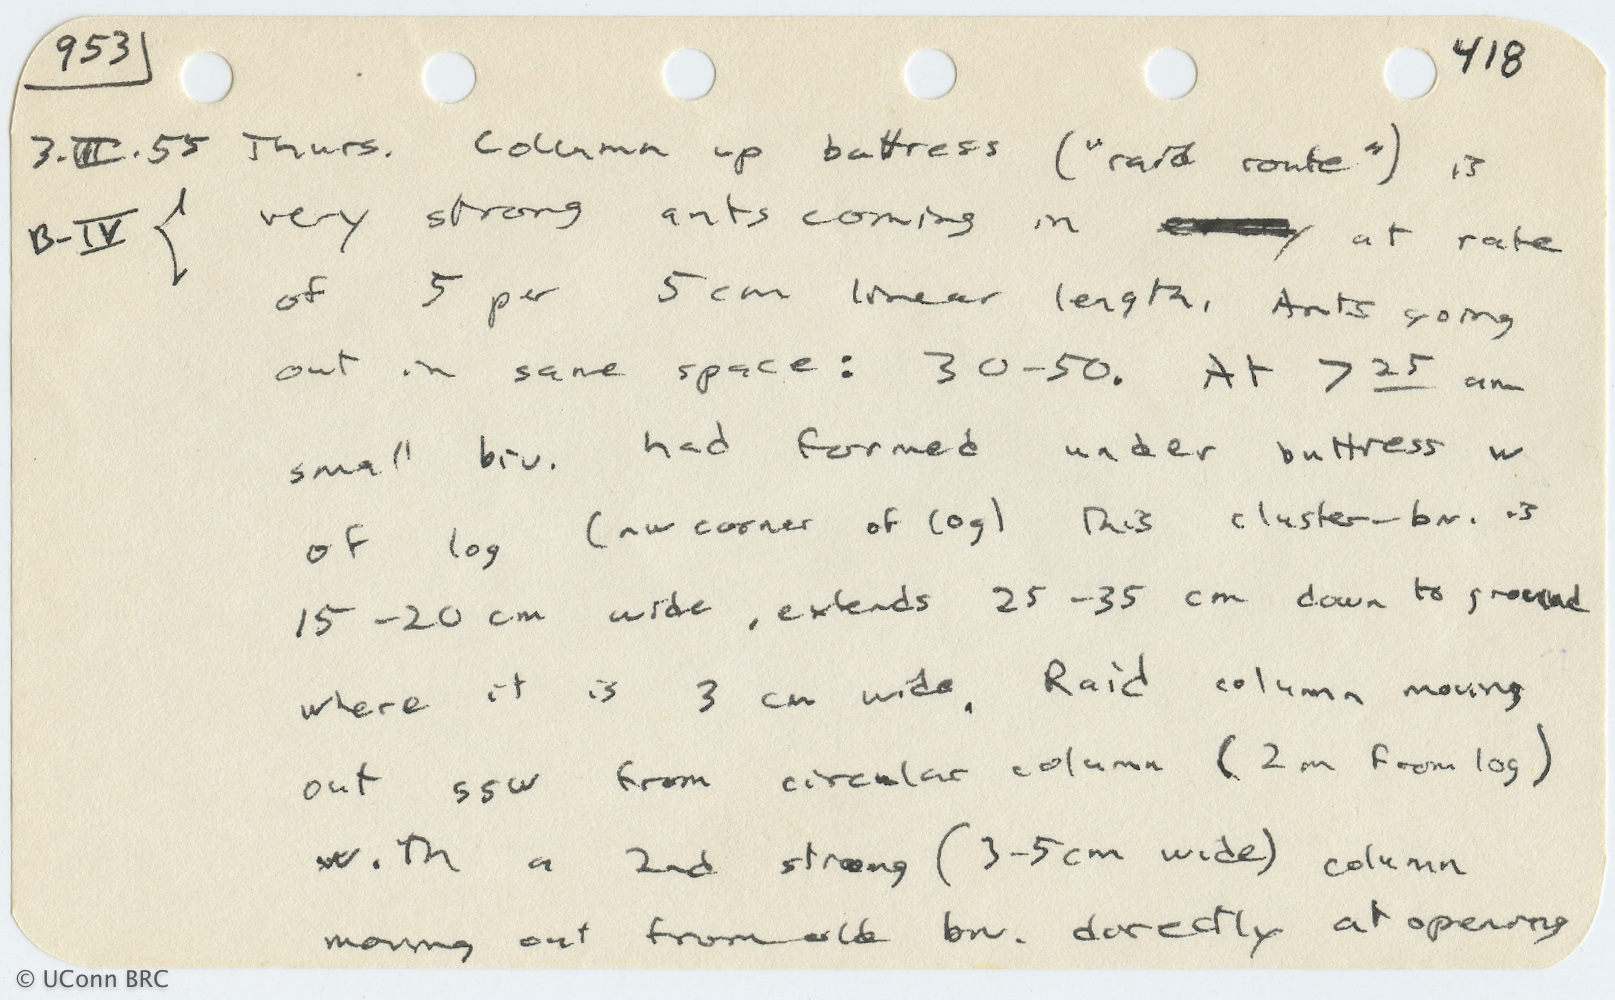 953
418
3.III.55 Thurs. Column up buttress ("raid route") is
B-IV { very strong ants coming in at rate
of 5 per 5 cm linear length. Ants going
out in same space: 30-50. At 725 am
small biv. had formed under buttress w
of log (nw corner of log) This cluster-biv. is
15-20 cm wide, extends 25-35 cm down to ground
where it is 3 cm wide. Raid column moving
out SSW from circular column (2 m from log)
with a 2nd strong (3-5 cm wide) column
moving out from old biv. directly at opening
© UConn BRC